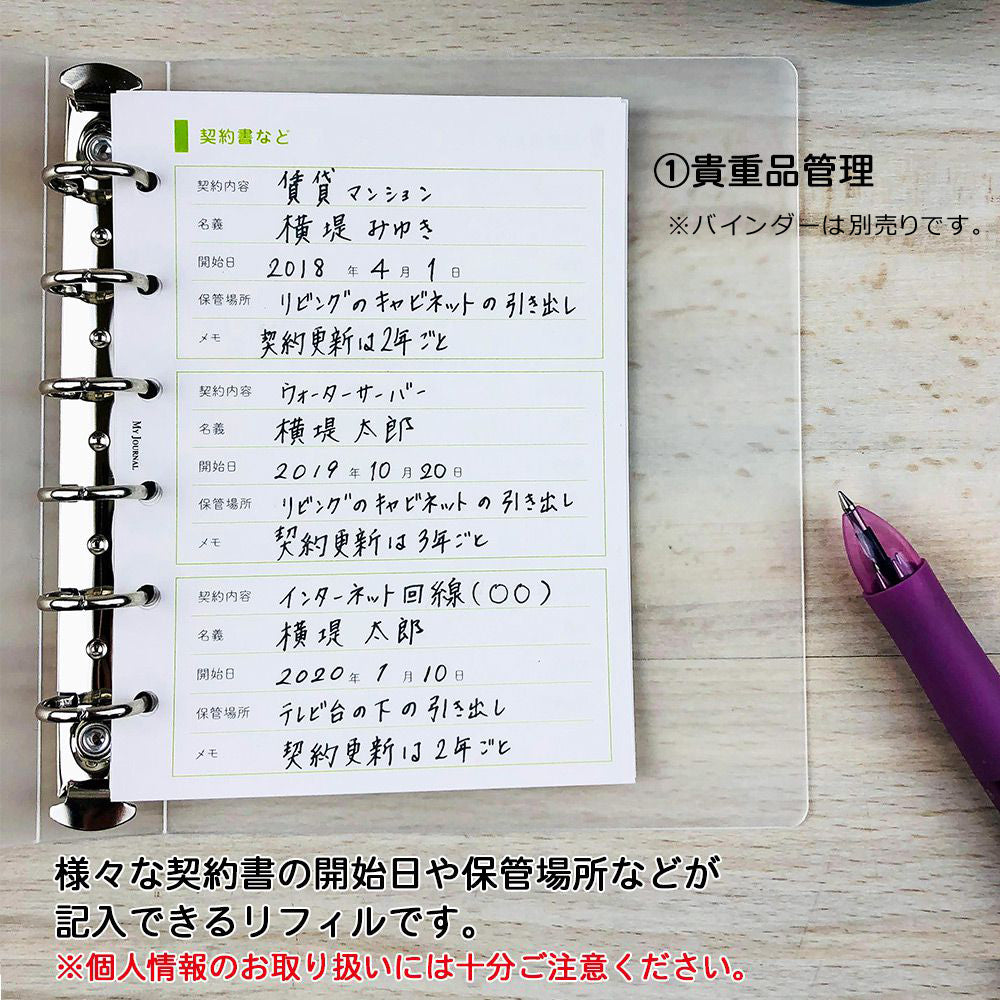 契約書など
①貴重品管理
※バインダーは別売りです。
契約内容 賃貸マンション
名義 横堤みゆき
開始日 2018年4月1日
保管場所 リビングのキャビネットの引き出し
メモ 契約更新は2年ごと
契約内容 ウォーターサーバー
名義 横堤 太郎
開始日 2019年10月20日
保管場所 リビングのキャビネットの引き出し
メモ 契約更新は3年ごと
MY JOURNAL
契約内容 インターネット回線(〇〇)
名義 横堤 太郎
開始日 2020年1月10日
保管場所 テレビ台の下の引き出し
メモ 契約更新は2年ごと
様々な契約書の開始日や保管場所などが
記入できるリフィルです。
※個人情報のお取り扱いには十分ご注意ください。